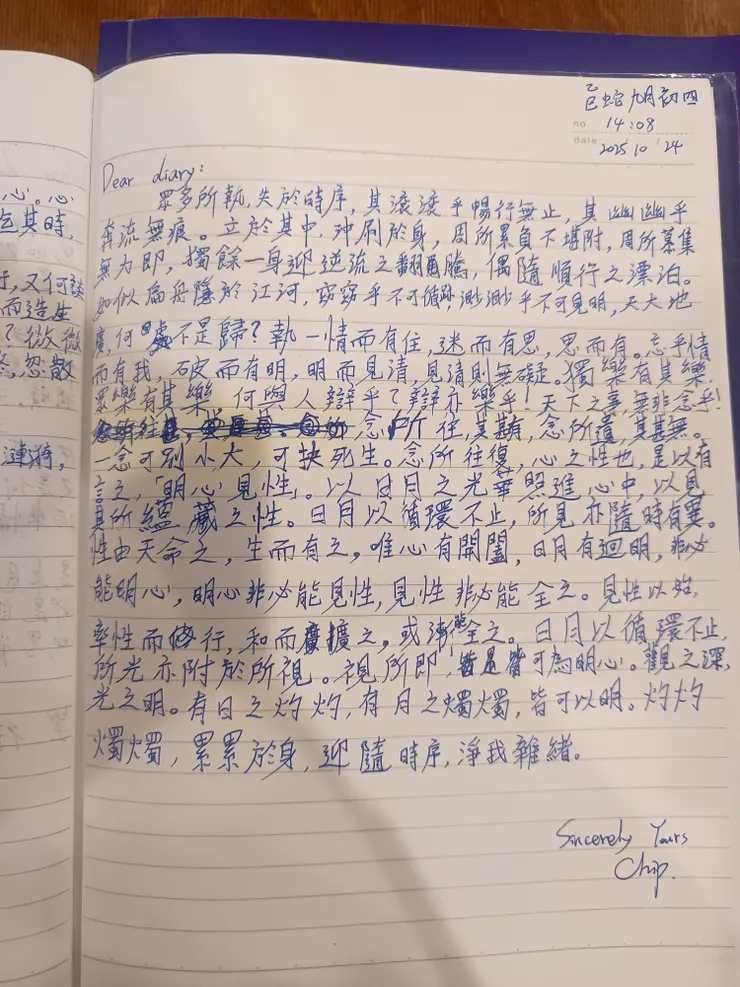 乙巳蛇九月初四
no. 14:08
date: 2025 10 24
Dear diary:
眾多所執,失於時序,其滾滾乎暢行無止,其幽幽乎
奔流無痕。立於其中,沖刷於身,周所累負不堪附,周所慕集
無力即,獨餘一身迎逆流之翻騰,偶隨順行之漂泊。
如似扁舟隱於江河,窈窈乎不可循跡,渺渺乎不可見明,天大地
廣,何處不是歸?執一情而有住,迷而有思,思而有。忘乎情
而有我,破而有明,明而見清,見清則無礙。獨樂有其樂,
眾樂有其樂,何與人辯乎?辯亦樂乎!天下之事,無非念乎!
念所往,其有,念所遣,其無。
一念可別小大,可抉死生。念所往復,心之性也,是以有
言之,「明心見性」。以日月之光華照進心中,以見
其所蘊藏之性。日月以循環不止,所見亦隨時有變。
性由天命之,生而有之。唯心有開闔,日月有迴明,非必
能明心,明心非必能見性,見性非必能全之。見性以始,
率性而修行,和而擴之,或漸能全之。日月以循環不止,
所光亦附於所視。視所即,皆可為明心。觀之深,
光之明。有日之灼灼,有月之燭燭,皆可以明。灼灼
燭燭,累累於身,迎隨時序,淨我雜緒。
Sincerely Yours
Chip.
心。心
其時,
行,又何
而造生
?微微
忽散
漣漪,